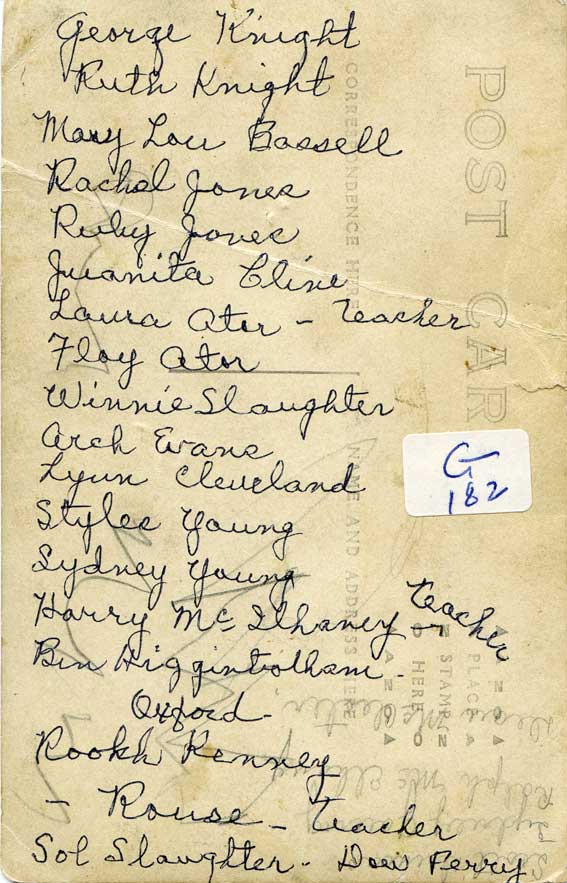 George Knight
Ruth Knight
Mary Lou Bassell
Rachel Jones
Ruby Jones
Juanita Cline
Laura Ator - Teacher
Floy Ator
Winnie Slaughter
Arch Evans
Lynn Cleveland
Styles Young
Sydney Young
Harry McIlhaney - Teacher
Ben Higginbotham -
Oxford -
Rookh Kenney
- Rouse - Teacher
Sol Slaughter - Dow Perry
G
182
POST CAR
CORRESPONDENCE HERE
NAME AND ADDRESS HERE
PLACE
STAMP
HERE